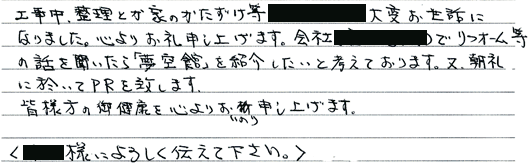 工事中、整理とか家のかたずけ等 大変お世話に
なりました。心よりお礼申し上げます。会社 でリフォーム等
の話を聞いたら「夢空館」を紹介したいと考えております。又、朝礼
に於いてPRを致します。
皆様方の御健康を心よりお祈申し上げます。
いのり
< 様によろしく伝えて下さい。>